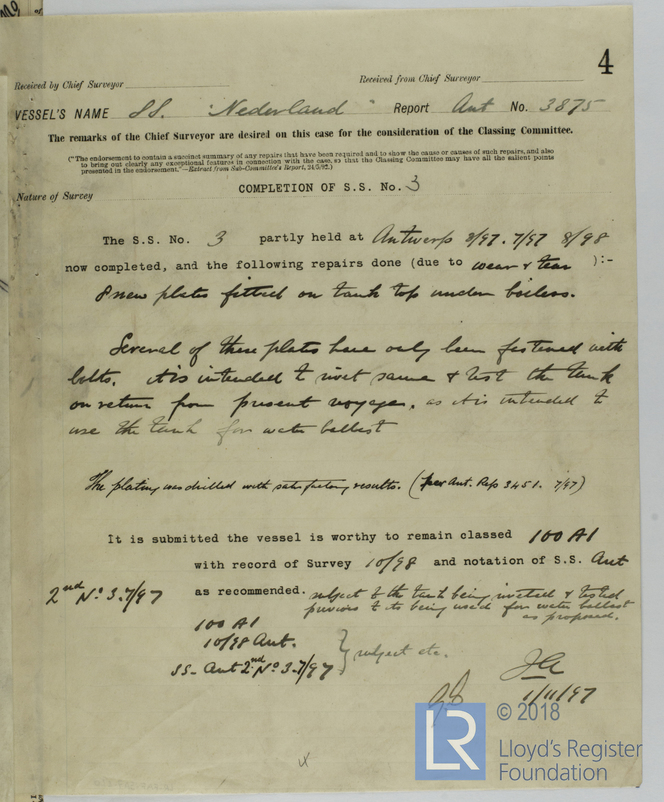 4
Received by Chief Surveyor Received from Chief Surveyor
VESSEL'S NAME SS. "Nederland" Report Ant No. 3875
The remarks of the Chief Surveyor are desired on this case for the consideration of the Classing Committee.
("The endorsement to contain a succinct summary of any repairs that have been required and to show the cause or causes of such repairs, and also
to bring out clearly any exceptional features in connection with the case, so that the Classing Committee may have all the salient points
presented in the endorsement."—Extract from Sub-Committee's Report, 24/5/82.)
COMPLETION OF S.S. No. 3
Nature of Survey
The S.S. No. 3 partly held at Antwerp 8/97. 7/97 8/98
now completed, and the following repairs done (due to wear & tear ):-
8 new plates fitted on tank top under boilers.
Several of these plates have only been fastened with
bolts. It is intended to rivet same & test the tank
on return from present voyage, as it is intended to
use the tank for water ballast
The plating was drilled with satisfactory results. (per Ant. Rep 3451. 7/97)
It is submitted the vessel is worthy to remain classed 100 A1
with record of Survey 10/98 and notation of S.S. Ant
2nd No 3. 7/97 as recommended. subject to the tank being riveted & tested
previous to its being used for water ballast
as proposed.
100 A1
10/98 Ant.
SS- Ant 2nd No 3-7/97 } subject etc.
1/11/97
LR © 2018
Lloyd's Register
Foundation